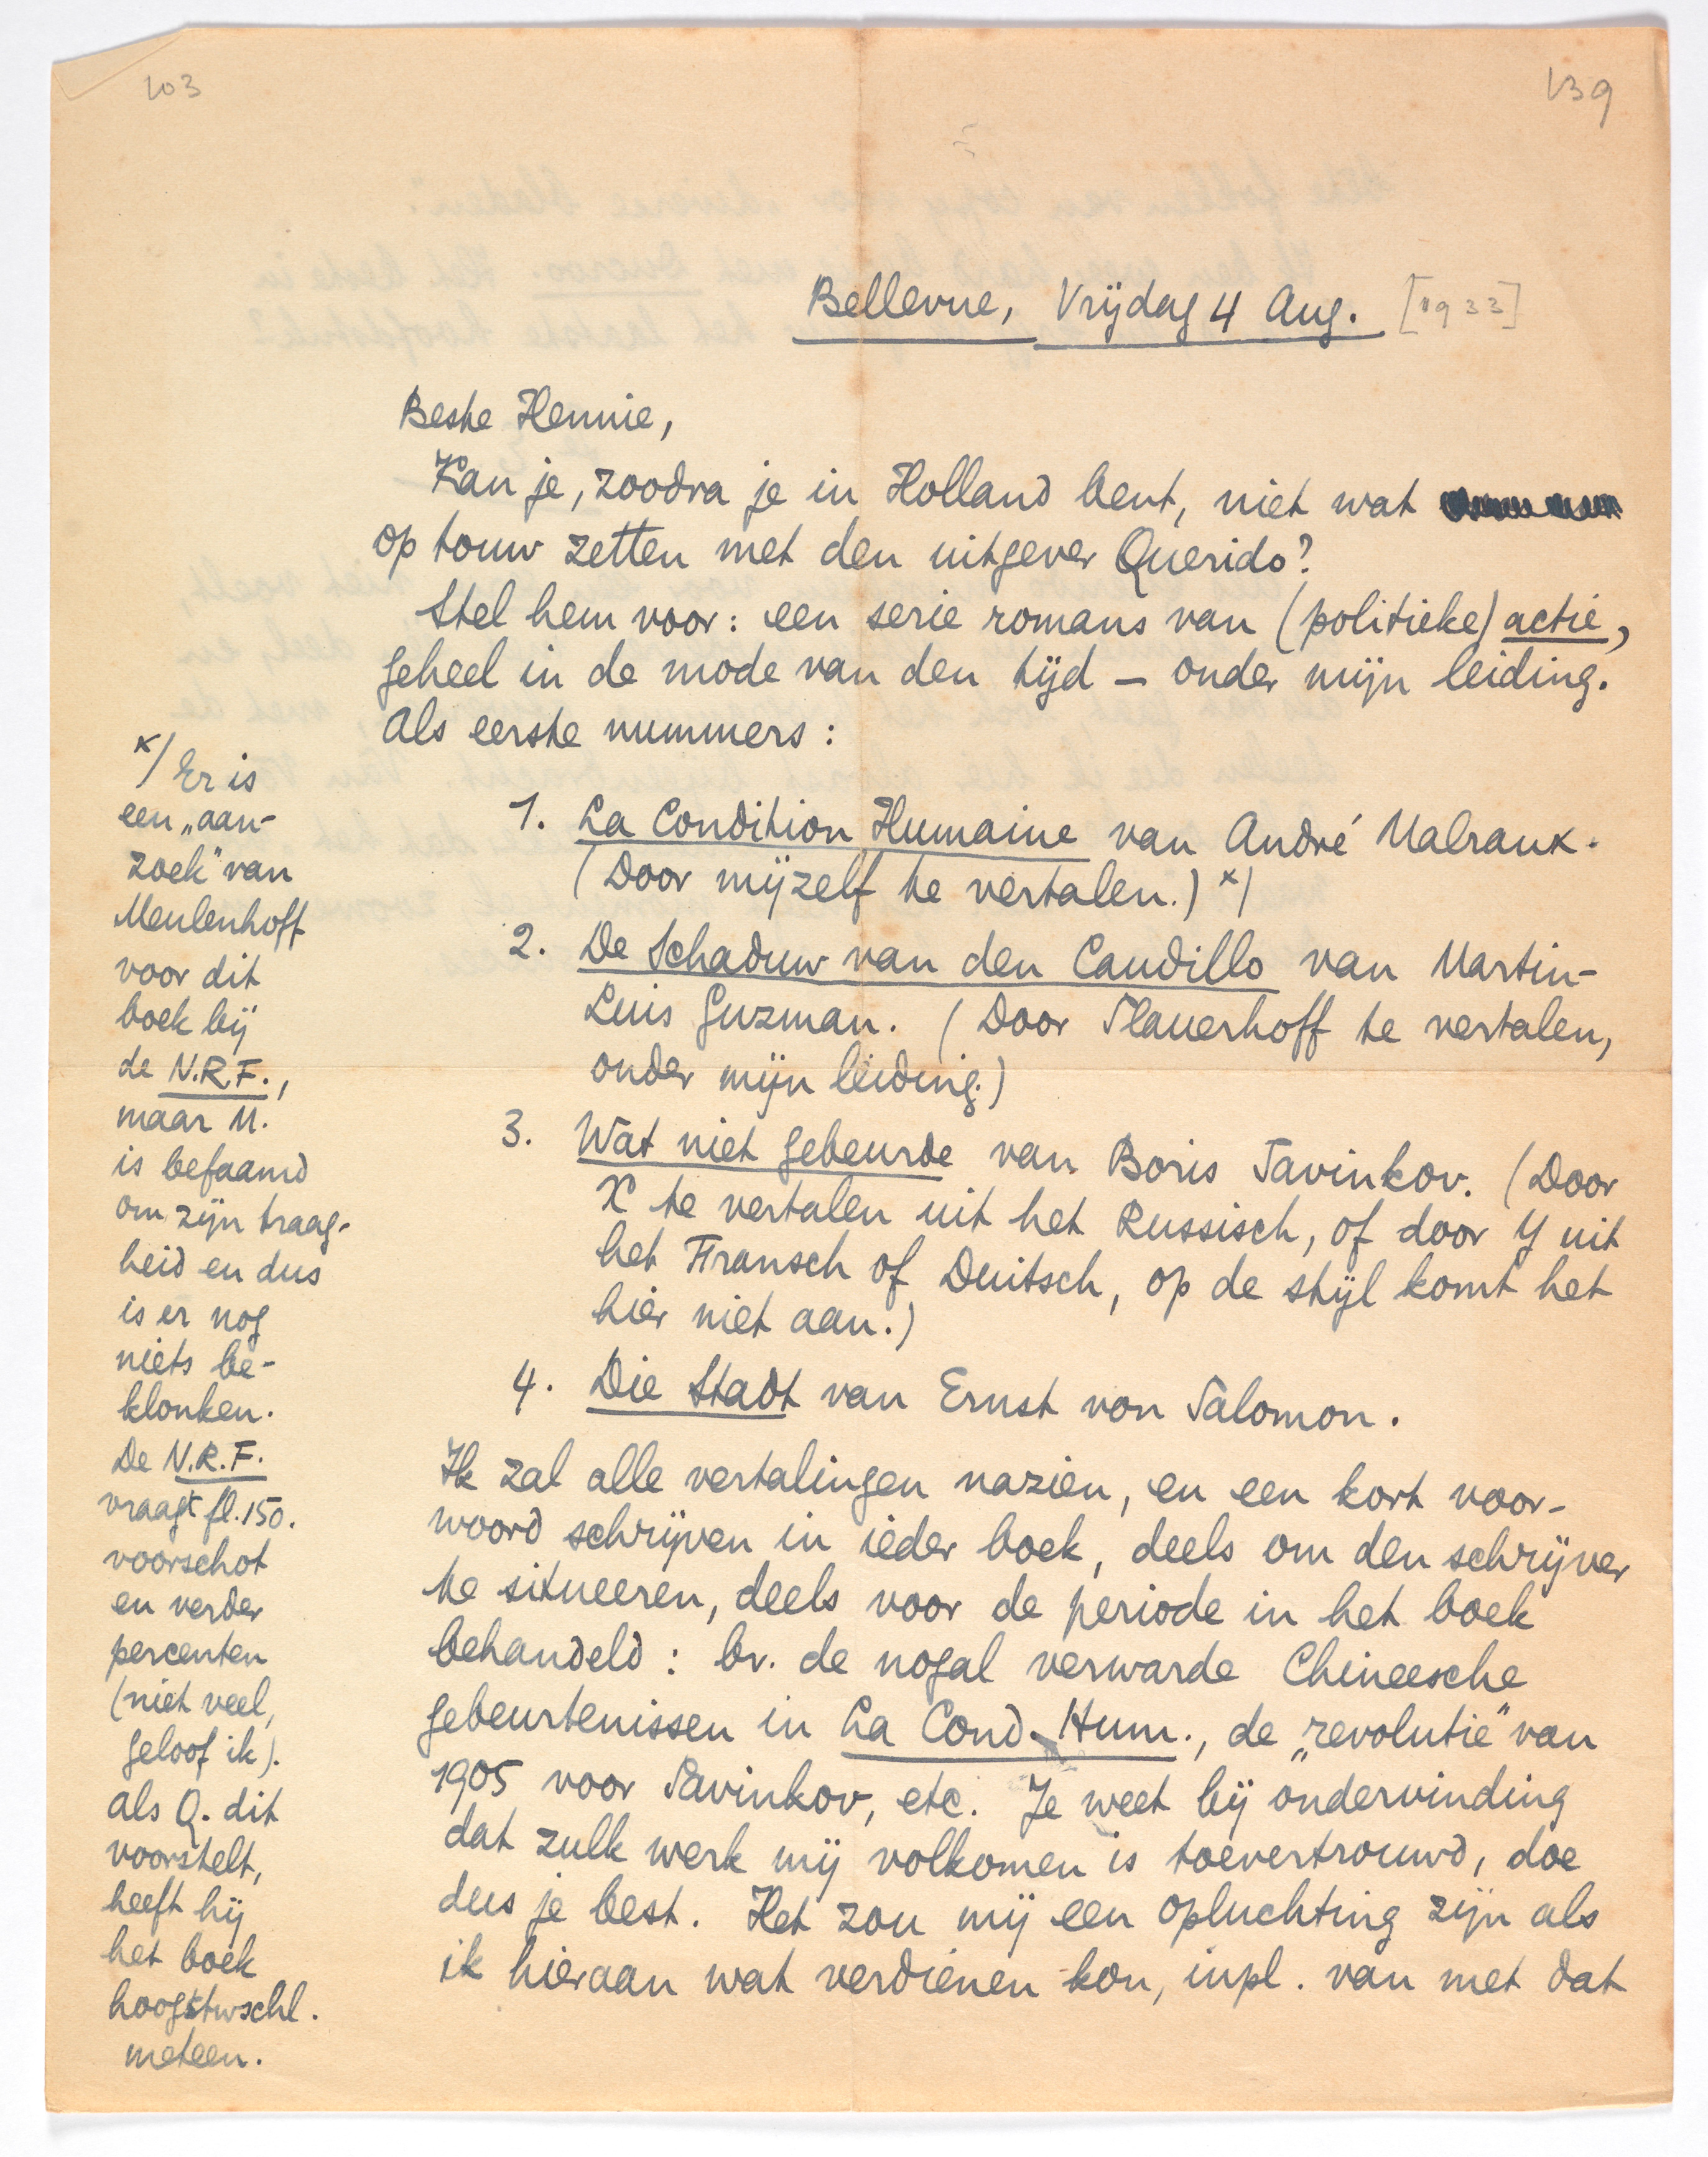 103
139
Bellevue, Vrijdag 4 Aug. [1933]
Beste Hennie,
Kan je, zoodra je in Holland bent, niet wat
op touw zetten met den uitgever Querido?
Stel hem voor: een serie romans van (politieke) actie,
geheel in de mode van den tijd — onder mijn leiding.
Als eerste nummers:
1. La Condition Humaine van André Malraux.
(Door mijzelf te vertalen.) x)
2. De Schaduw van den Caudillo van Martin-
Luis Guzman. (Door Slauerhoff te vertalen,
onder mijn leiding.)
3. Wat niet gebeurde van Boris Savinkov. (Door
X te vertalen uit het Russisch, of door Y uit
het Fransch of Duitsch, op de stijl komt het
hier niet aan.)
4. Die Stadt van Ernst von Salomon.
Ik zal alle vertalingen nazien, en een kort voor-
woord schrijven in ieder boek, deels om den schrijver
te situeeren, deels voor de periode in het boek
behandeld: bv. de nogal verwarde Chineesche
gebeurtenissen in La Cond. Hum., de „revolutie" van
1905 voor Savinkov, etc. Je weet bij ondervinding
dat zulk werk mij volkomen is toevertrouwd, doe
dus je best. Het zou mij een opluchting zijn als
ik hieraan wat verdienen kon, inpl. van met dat
x) Er is
een „aan-
zoek" van
Meulenhoff
voor dit
boek bij
de N.R.F.,
maar M.
is befaamd
om zijn traag-
heid en dus
is er nog
niets be-
klonken.
De N.R.F.
vraagt fl. 150.
voorschot
en verder
percenten
(niet veel,
geloof ik).
Als Q. dit
voorstelt,
heeft hij
het boek
hoogstwschl.
meteen.